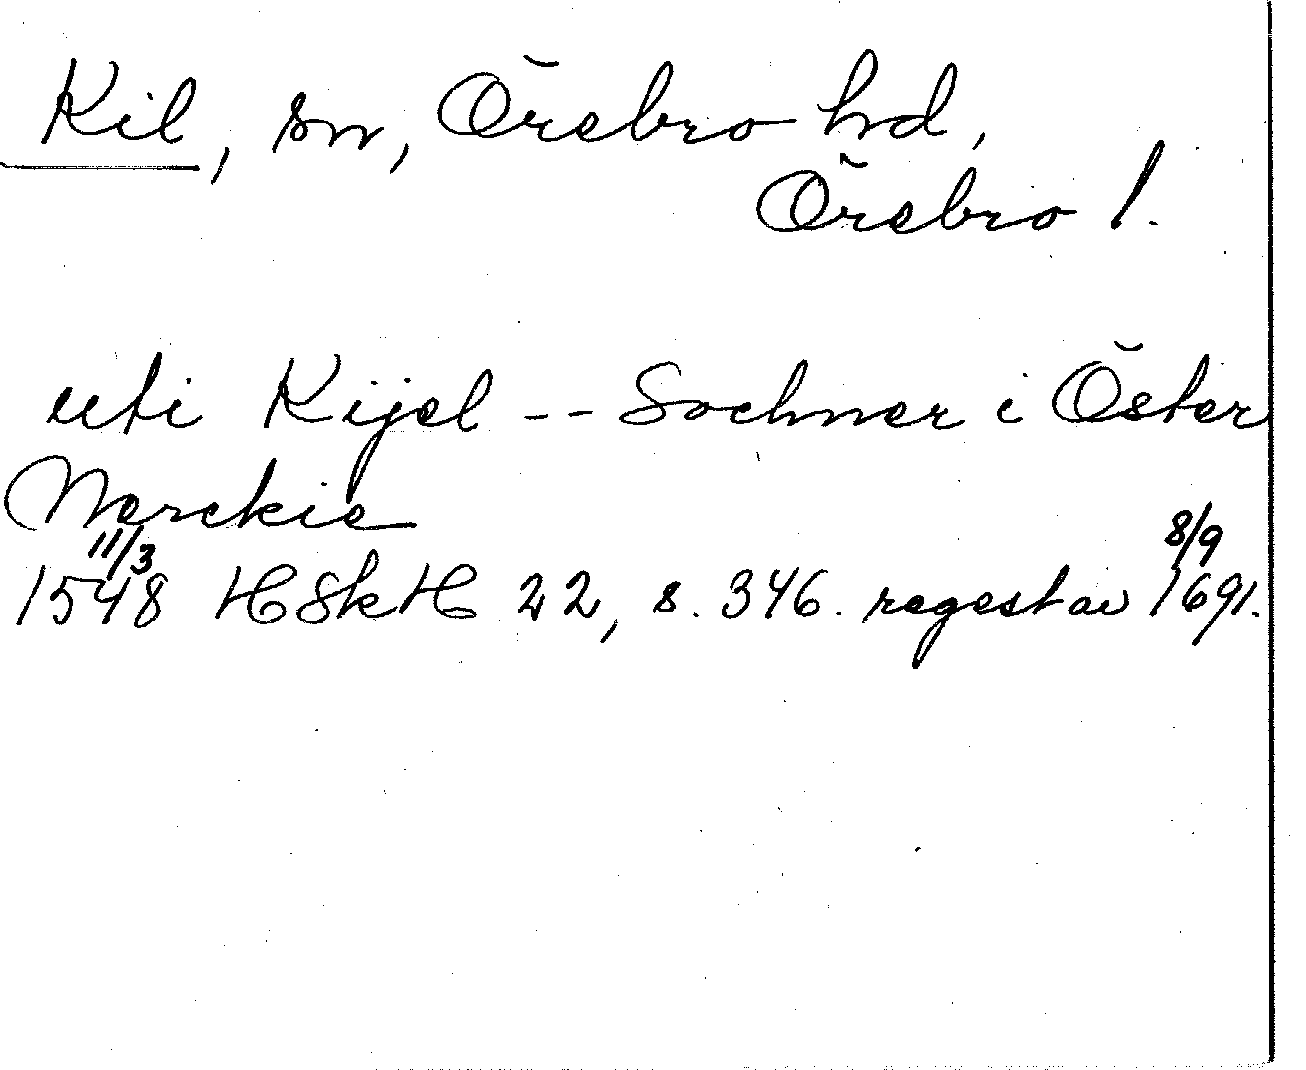 Kil, sn, Örebro hd,
Örebro l.
uti Kijel -- Sochner i Öster
Nerckie
11/3 8/9
1548 HSkH 22, s. 346. regest av 1691.